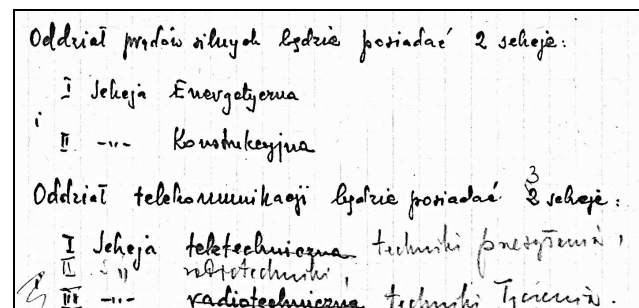 Oddział prądów silnych będzie posiadać 2 sekcje:
I Sekcja Energetyczna
i
II -"- Konstrukcyjna
Oddział telekomunikacji będzie posiadać 3 sekcje:
I Sekcja teletechniczna techniki przesyłania,
II " radiotechniki,
III -"- radiotechniczna techniki łączenia.